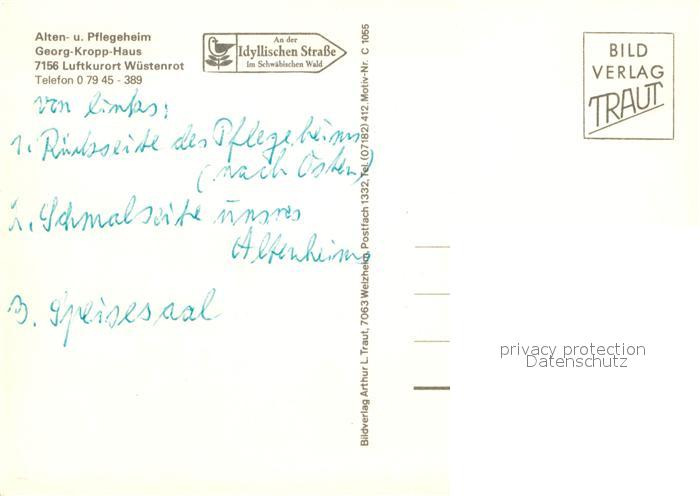 Alten- u. Pflegeheim
Georg-Kropp-Haus
7156 Luftkurort Wüstenrot
Telefon 0 79 45 - 389
An der
Idyllischen Straße
Im Schwäbischen Wald
BILD
VERLAG
TRAUT
von links:
1. Rückseite des Pflegeheims
(nach Osten)
2. Schmalseite unsres
Altenheims
3. Speisesaal
Bildverlag Arthur L. Traut, 7063 Welzheim, Postfach 1332, Tel. (07182) 412, Motiv-Nr. C 1055
privacy protection
Datenschutz